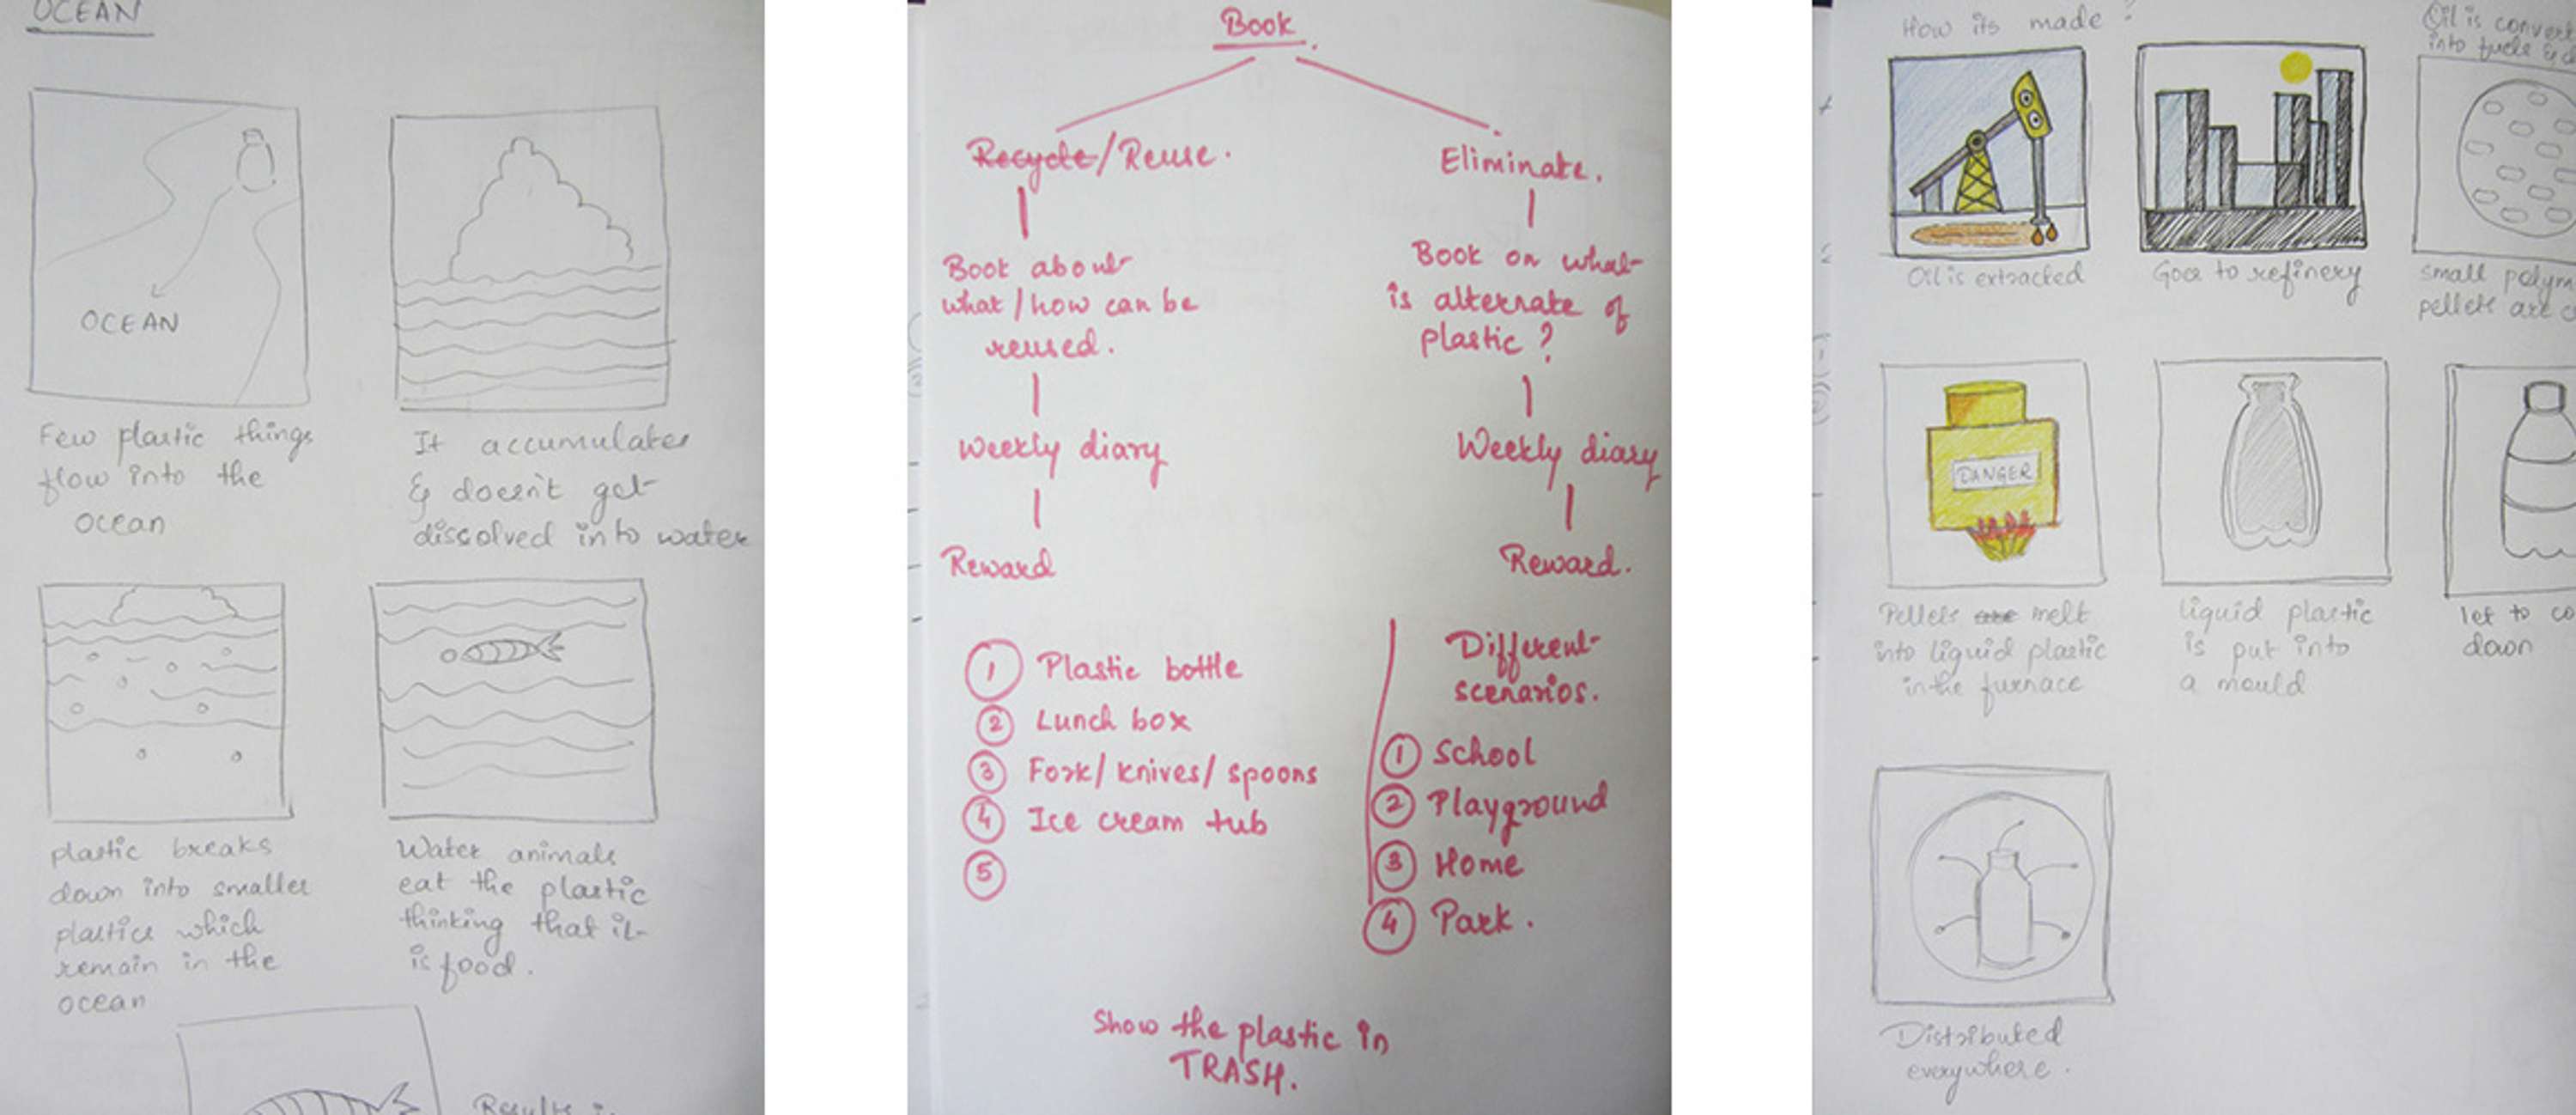 OCEAN
OCEAN
Few plastic things
flow into the
ocean
It accumulates
& doesn't get
dissolved into water
plastic breaks
down into smaller
plastics which
remain in the
ocean
Water animals
eat the plastic
thinking that it
is food.
Results
Book.
Recycle/Reuse.
Book about
what/how can be
reused.
Weekly diary
Reward
Eliminate.
Book on what
is alternate of
plastic?
Weekly diary
Reward.
1 Plastic bottle
2 Lunch box
3 Fork/knives/spoons
4 Ice cream tub
5
Different
scenarios.
1 School
2 Playground
3 Home
4 Park.
Show the plastic in
TRASH.
How its made?
Oil is extracted
Goes to refinery
Oil is convert
into fuels &
small polym
pellets are
DANGER
Pellets are melt
into liquid plastic
in the furnace
liquid plastic
is put into
a mould
let to co
down
Distributed
everywhere.